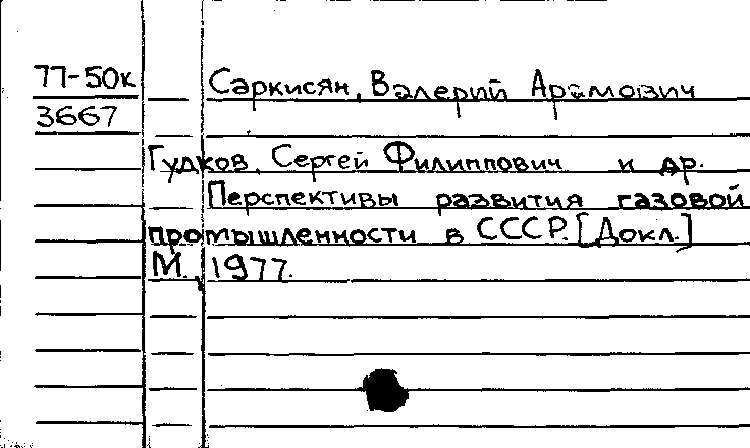 77-50к Саркисян, Валерий Арамович
3667
Гудков, Сергей Филиппович и др.
Перспективы развития газовой
промышленности в СССР. [Докл.]
М., 1977.